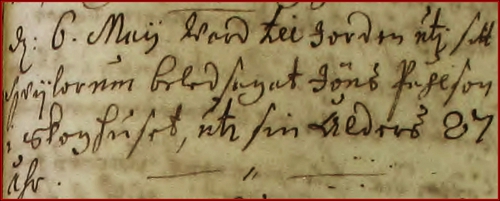 d: 6. Maij Ward till Jorden uti sitt
hwilorum beledsagat Jöns Pehlson
i skoghuset, uti sin ålders 87
åhr.